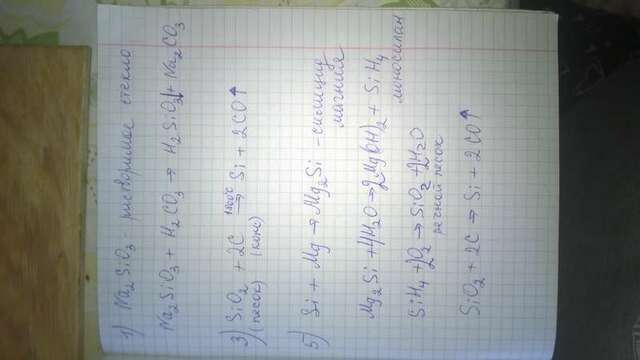 1) Na₂SiO₃ - растворимое стекло
Na₂SiO₃ + H₂CO₃ → H₂SiO₃↓ + Na₂CO₃
3) SiO₂ + 2C → Si + 2CO↑
(песок) (кокс)
5) Si + Mg → Mg₂Si - силицид
магния
Mg₂Si + 4H₂O → 2Mg(OH)₂ + SiH₄
моносилан
SiH₄ + 2O₂ → SiO₂ + 2H₂O
речной песок
SiO₂ + 2C → Si + 2CO↑